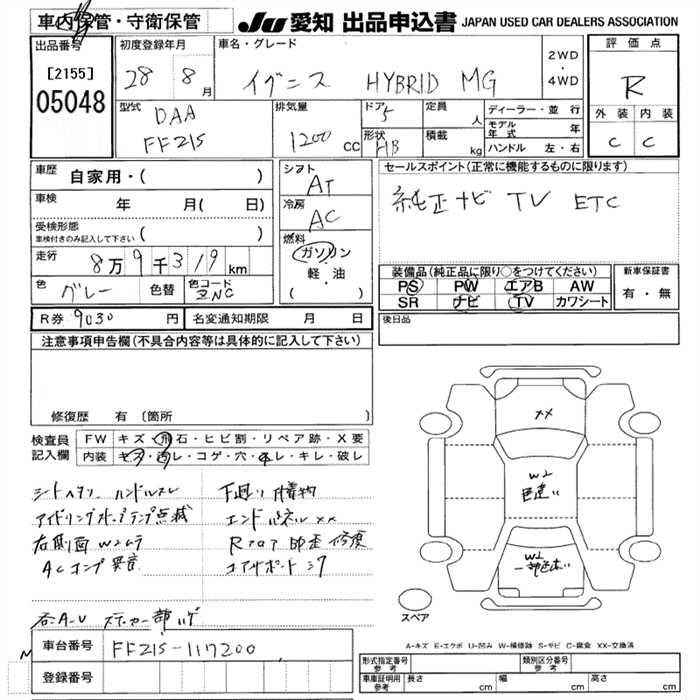 車内保管・守衛保管
JU 愛知 出品申込書 JAPAN USED CAR DEALERS ASSOCIATION
出品番号 [2155] 05048
初度登録年月 28 8月
車名・グレード イグニス HYBRID MG
2WD・4WD
評価点 R
型式 DAA FF21S
排気量 1200 cc
ドア 5
形状 HB
定員 人
積載 kg
ディーラー・並行
モデル年式 年
ハンドル 左・右
外装 内装
C C
車歴 自家用・( )
車検 年 月( 日)
受検形態
車検付きのみ記入して下さい ( )
走行 8万9千319km
色 グレー 色替 色コード ZNC
シフト AT
冷房 AC
燃料 ガソリン
軽・油
( )
セールスポイント(正常に機能するものに限ります)
純正ナビ TV ETC
装備品(純正品に限り○をつけてください)
PS PW エアB AW
SR ナビ TV カワシート
新車保証書
有・無
R券 9030 円 名変通知期限 月 日
後日品
注意事項申告欄(不具合内容等は具体的に記入して下さい)
修復歴 有 〔箇所 〕
検査員記入欄
FW キズ・飛石・ヒビ割・リペア跡・X要
内装 キズ・汚レ・コゲ・穴・キレ・破レ
シートヘタリ ハンドルスレ
下廻り 付着物
アイドリングストップランプ点滅
エンドパネルXX
右側面W2ムラ
Rフロア 修復
ACコンプ異音
コアサポートキズ
XX
W2
色違い
W2
一部色違い
スペア
A-キズ E-エクボ U-凹み W-補修跡 S-サビ C-腐食 XX-交換済
車台番号 FF21S-117200
登録番号
形式指定番号 参考
類別区分番号 参考
車庫証明用 参考 長さ cm 幅 cm 高さ cm